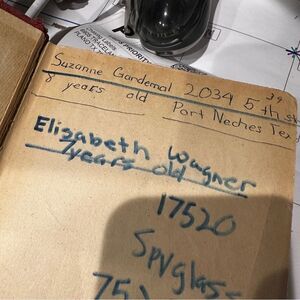 PRIORITY
PLANO TX
39
Suzanne Gardemal 2034 5th st
8 years old Port Neches Tex
Elizabeth Wagner
7 years old
17520
Spyglass
75